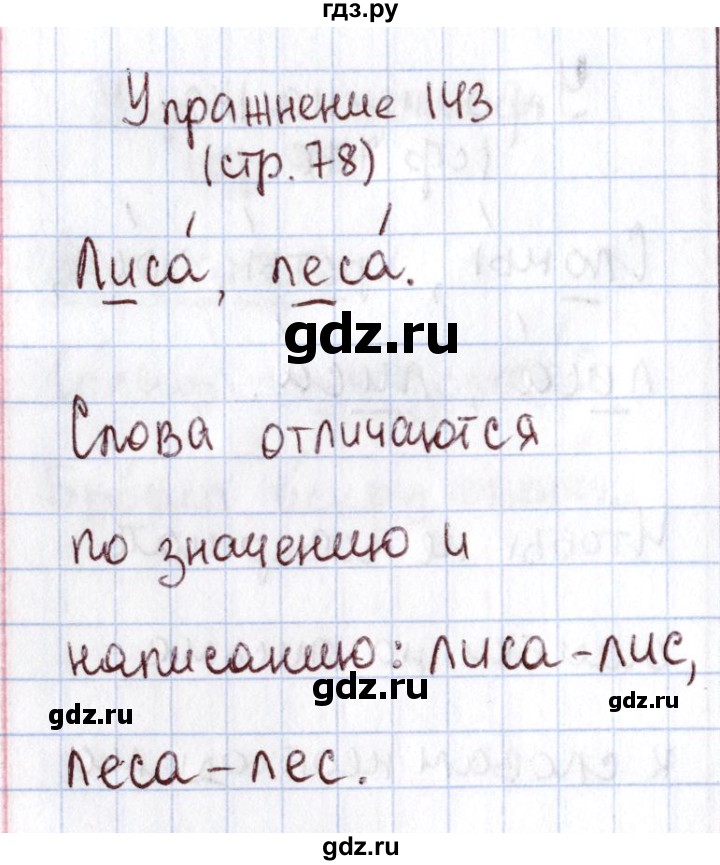 гдз.ру
Упражнение 143
(стр. 78)
Лиса́, леса́.
gdz.ru
Слова отличаются
по значению и
написанию: лиса - лис,
gdz.ru
gdz.ru
леса - лес.
gdz.ru
gdz.ru